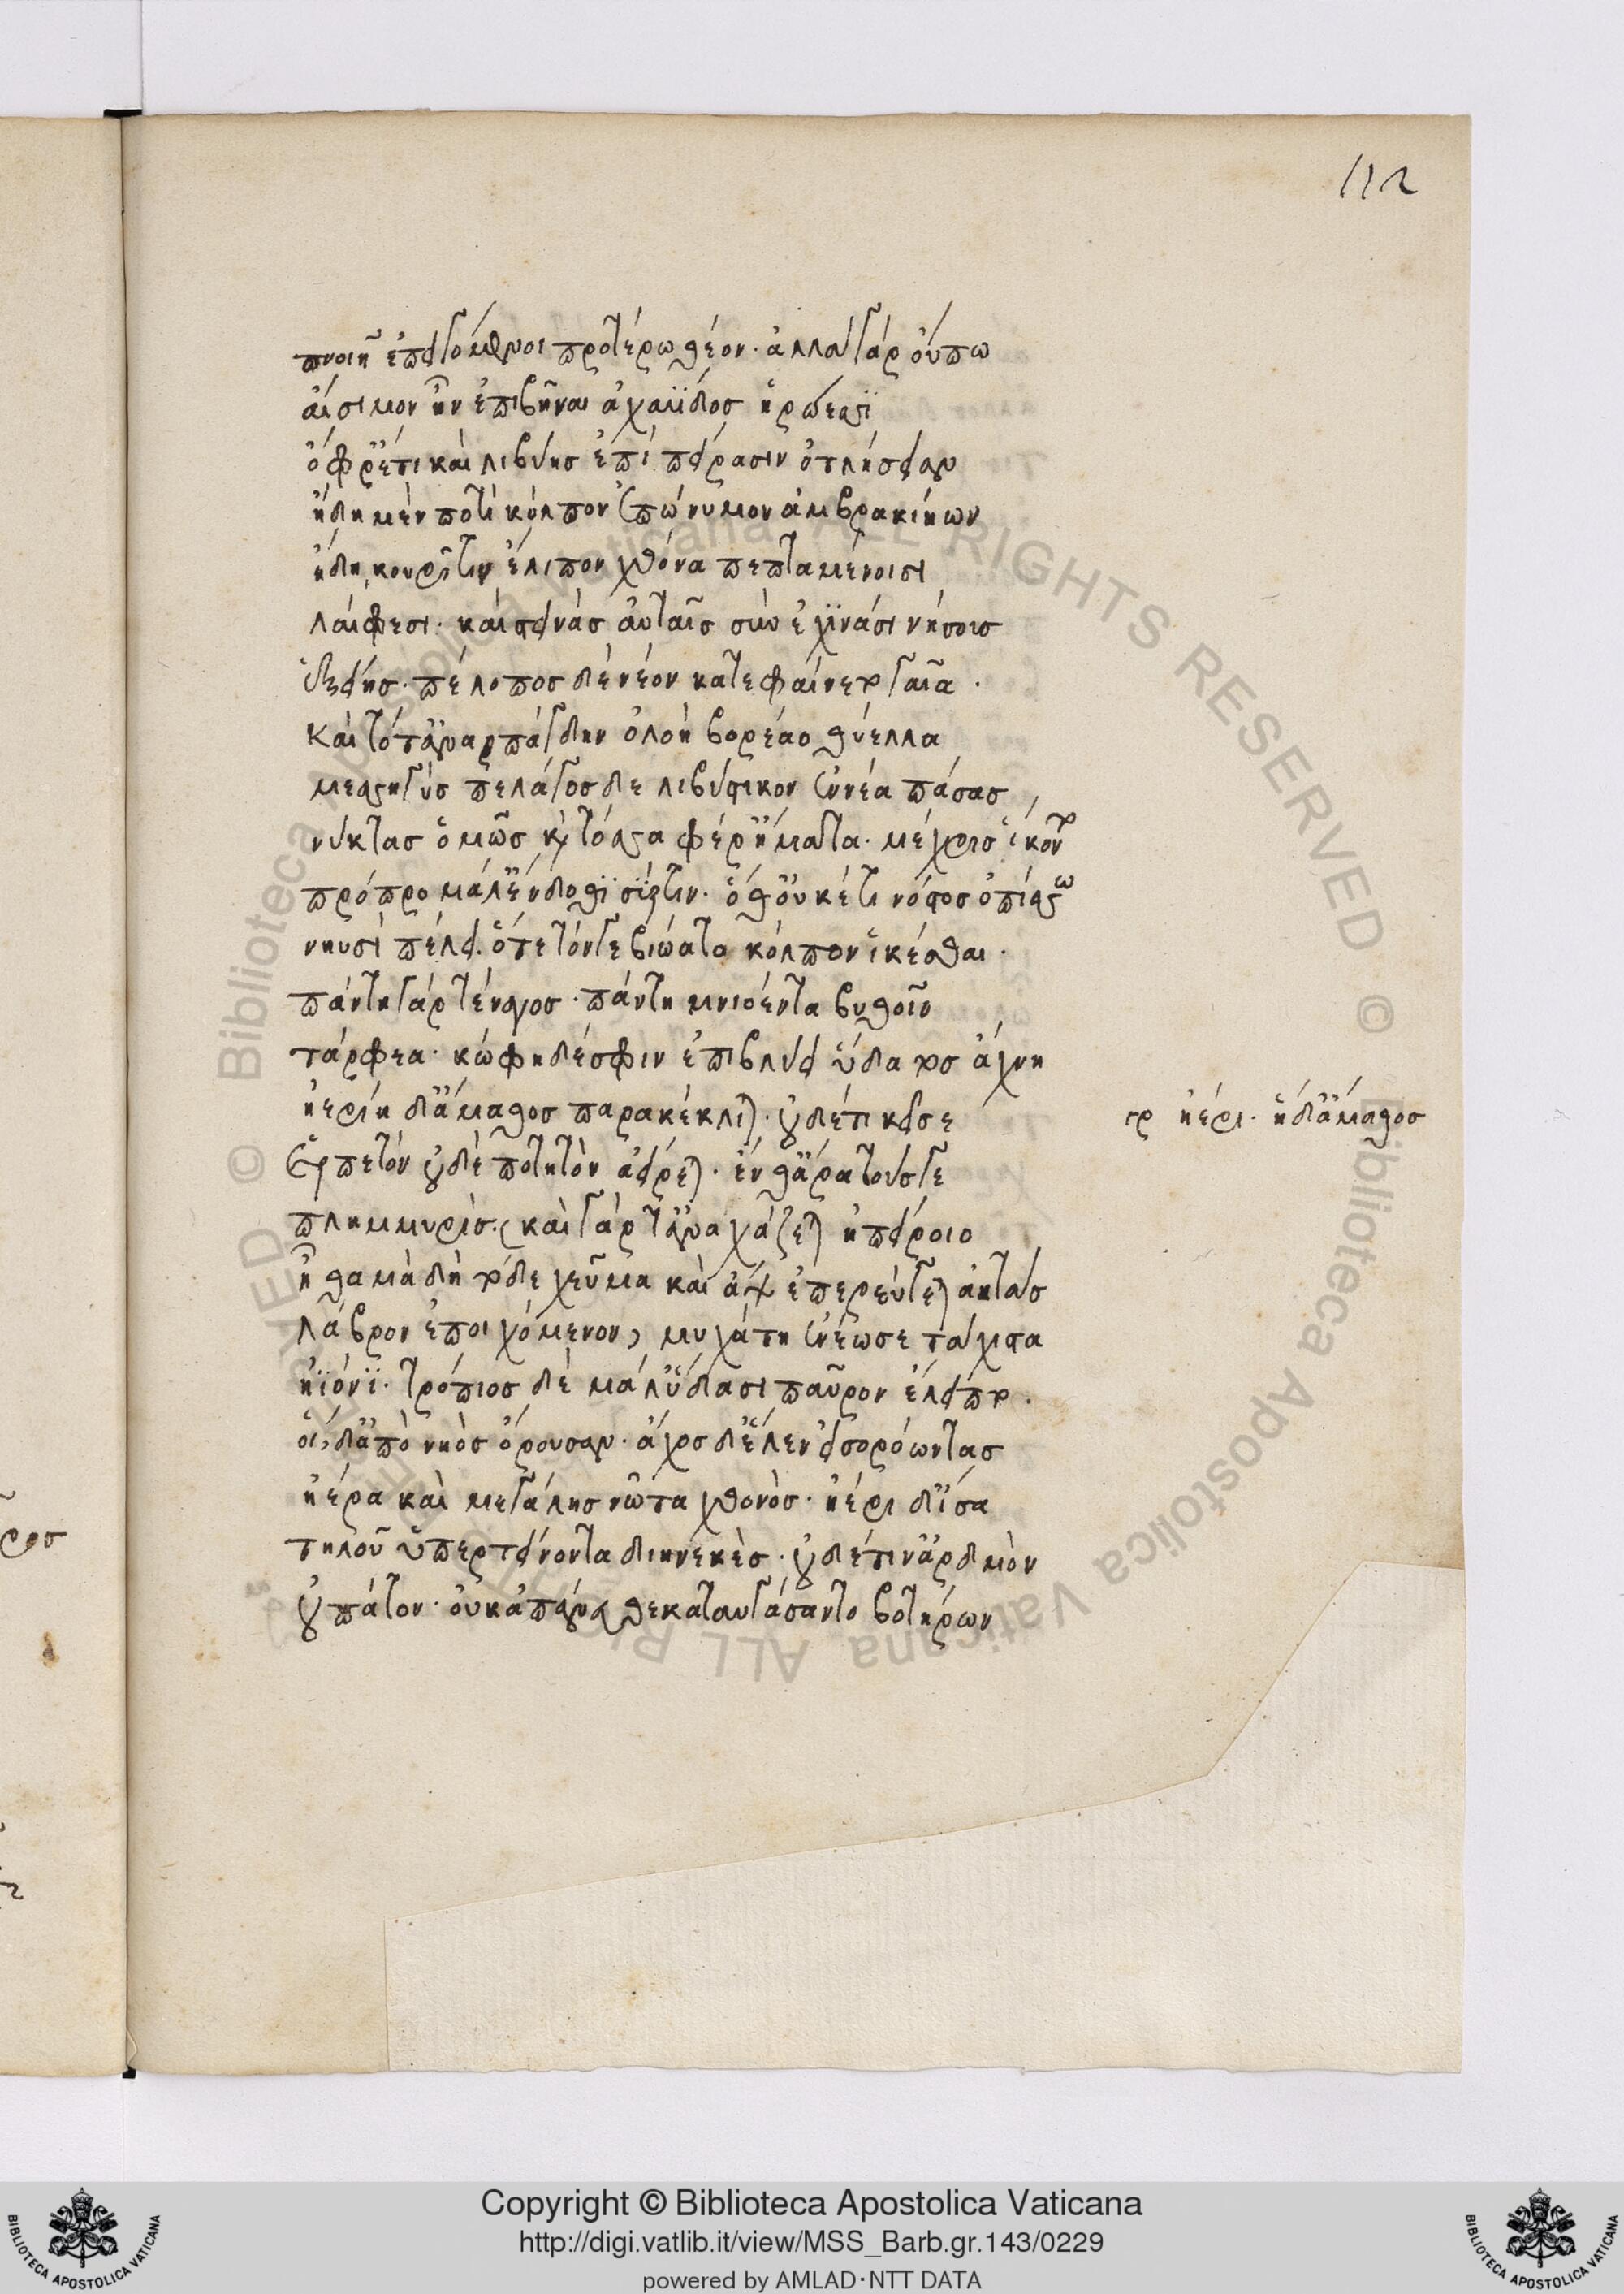 112
πνοιῆ ἐπειγόμενοι προτέρω θέον· ἀλλὰ γὰρ οὔπω
αἴσιμον ἦν ἐπιβῆναι ἀχαιΐδος ἡρώεσσϊ
ὄφρ' ἔτι καὶ λιβύης ἐπὶ πείρασιν ὀτλήσειαν
ἤδη μέν ποτὶ κόλπον ἐπώνυμον ἀμβρακιήων
ἤδη κουρῆτιν ἔλιπον χθόνα πεπταμένοισι
λαίφεσι· καὶ στεινὰς αὐταῖς σὺν ἐχϊνάσι νήσοις
ἑξείης· πέλοπος δὲ νέον κατεφαίνετο γαῖα·
καὶ τότ' ἀναρπάγδην ὀλοὴ βορέαο θύελλα
μεσσηγὺς πελάγοσδε λιβυστικον ἐννέα πάσας
νύκτας ὁμῶς καὶ τόσσα φέρ' ἤματα· μέχρις ἵκοντο
πρόπρο μάλ' ἔνδοθϊ σύρτιν· ὅθ' οὐκέτι νόστος ὀπίσσω
νηυσὶ πέλει· ὅτε τόνγε βιώατο κόλπον ἱκέσθαι·
πάντη γὰρ τέναγος· πάντη μνιόεντα βυθοῖο
τάρφεα· κωφὴ δέ σφιν ἐπιβλύει ὕδατος ἄχνη
ἠερίη δ' ἄμαθος παρακέκλιται· οὐδέ τι κεῖσε
ἑρπετὸν οὐδὲ ποτητὸν ἀείρεται· ἔνθ' ἄρα τούσγε
πλημμυρίς· (καὶ γάρ τ' ἀναχάζεται ἠπείροιο
ἦ θαμὰ δὴ τόδε χεῦμα καὶ ἂψ ἐπερεύγεται ἀκτὰς
λάβρον ἐποιχόμενον, μυχάτη ἐνέωσε τάχιστα
ἠϊόνϊ· τρόπιος δὲ μάλ' ὕδασι παῦρον ἔλειπτο·
οἱ δ' ἀπὸ νηὸς ὄρουσαν· ἄχος δ' ἕλεν εἰσορόωντας
ἠέρα καὶ μεγάλης νῶτα χθονὸς· ἠέρι δ' ἶσα
τηλοῦ ὑπερτείνοντα διηνεκὲς· οὐδέ τιν' ἀρδμὸν
οὐ πάτον· οὐκ ἀπάνευθε κατηυγάσαντο βοτήρων
γρ ἠέρι· ἡ δ' ἄμαθος
Copyright © Biblioteca Apostolica Vaticana
http://digi.vatlib.it/view/MSS_Barb.gr.143/0229
powered by AMLAD·NTT DATA